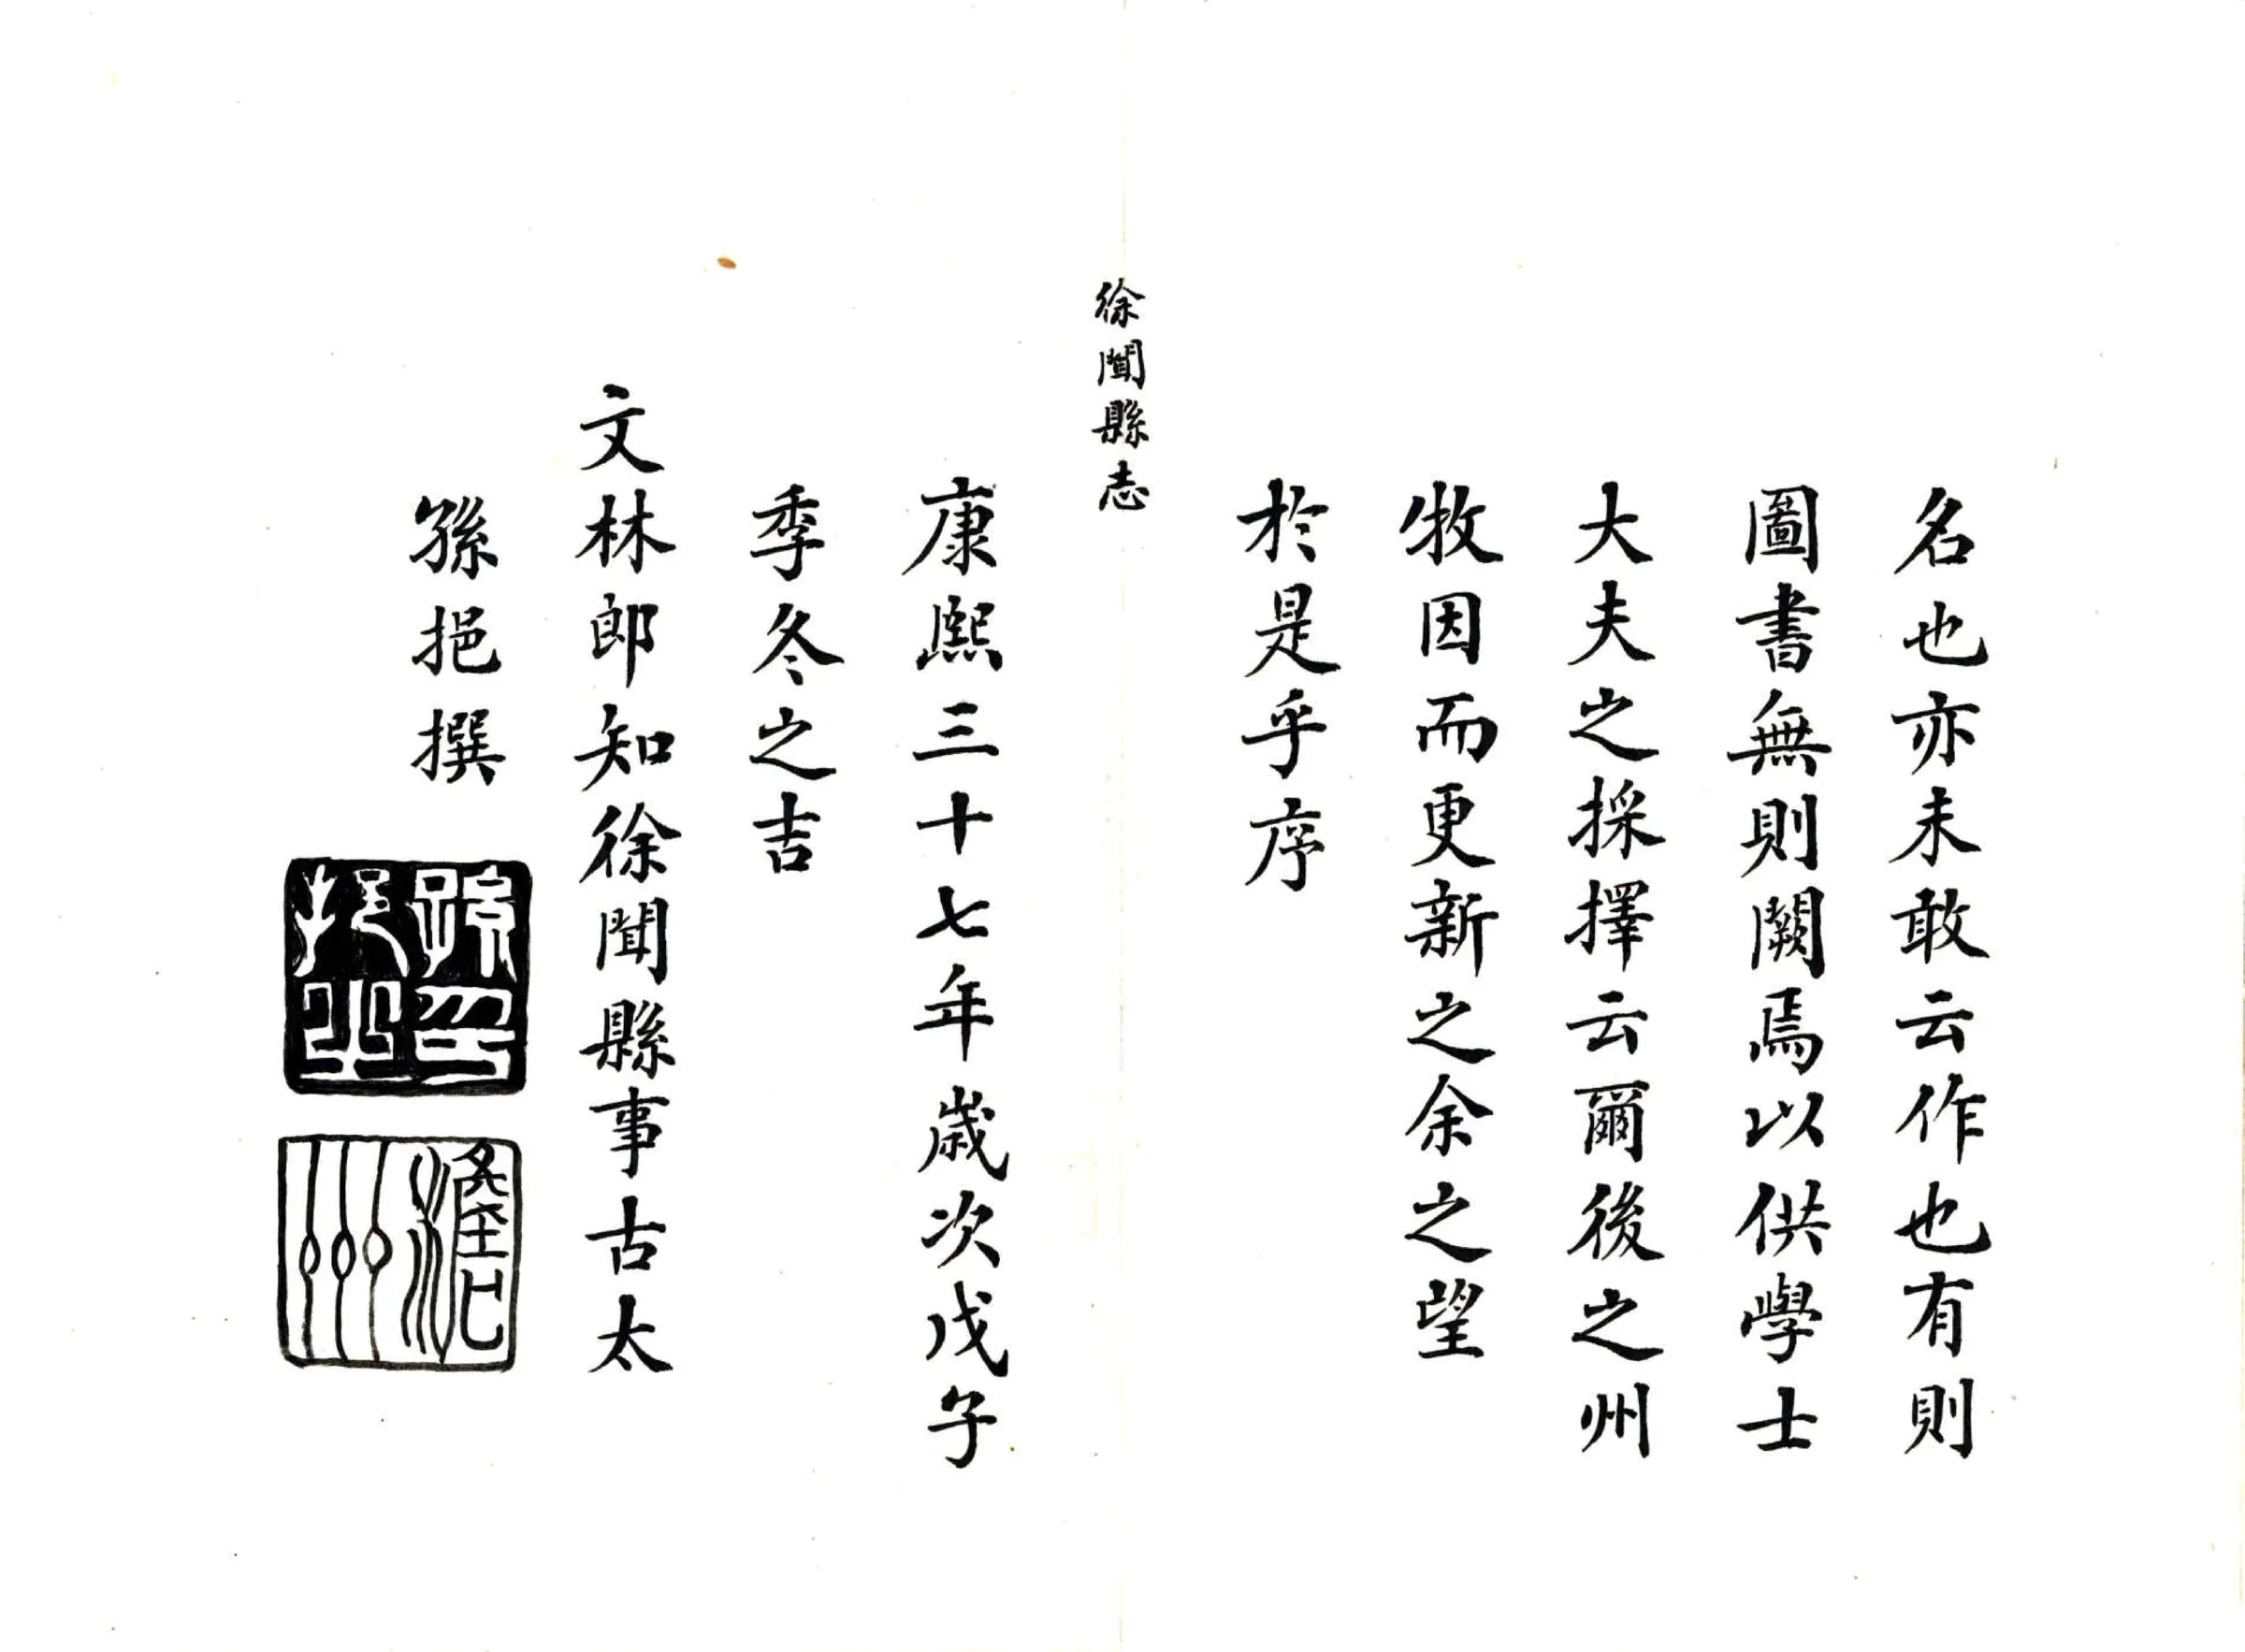 名也亦未敢云作也有則
圖書無則闕焉以供學士
大夫之採擇云爾後之州
牧因而更新之余之望
於是乎序
徐聞縣志
康熙三十七年歲次戊子
季冬之吉
文林郎知徐聞縣事古太
孫挹撰
澹州